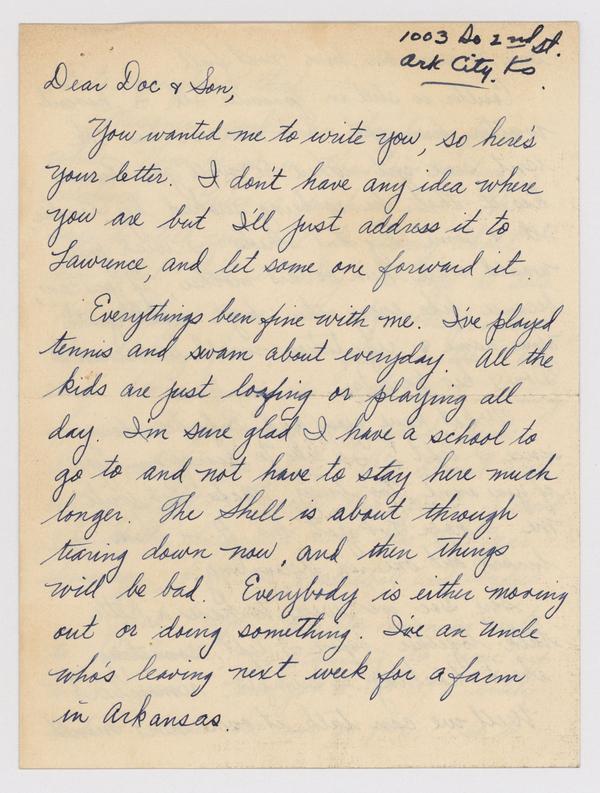 1003 So 2nd St.
Ark City, Ks.
Dear Doc & Son,
You wanted me to write you, so here's
your letter. I don't have any idea where
you are but I'll just address it to
Lawrence, and let some one forward it.
Everythings been fine with me. I've played
tennis and swam about everyday. All the
kids are just loafing or playing all
day. I'm sure glad I have a school to
go to and not have to stay here much
longer. The Shell is about through
tearing down now, and then things
will be bad. Everybody is either moving
out or doing something. I've an Uncle
who's leaving next week for a farm
in Arkansas.